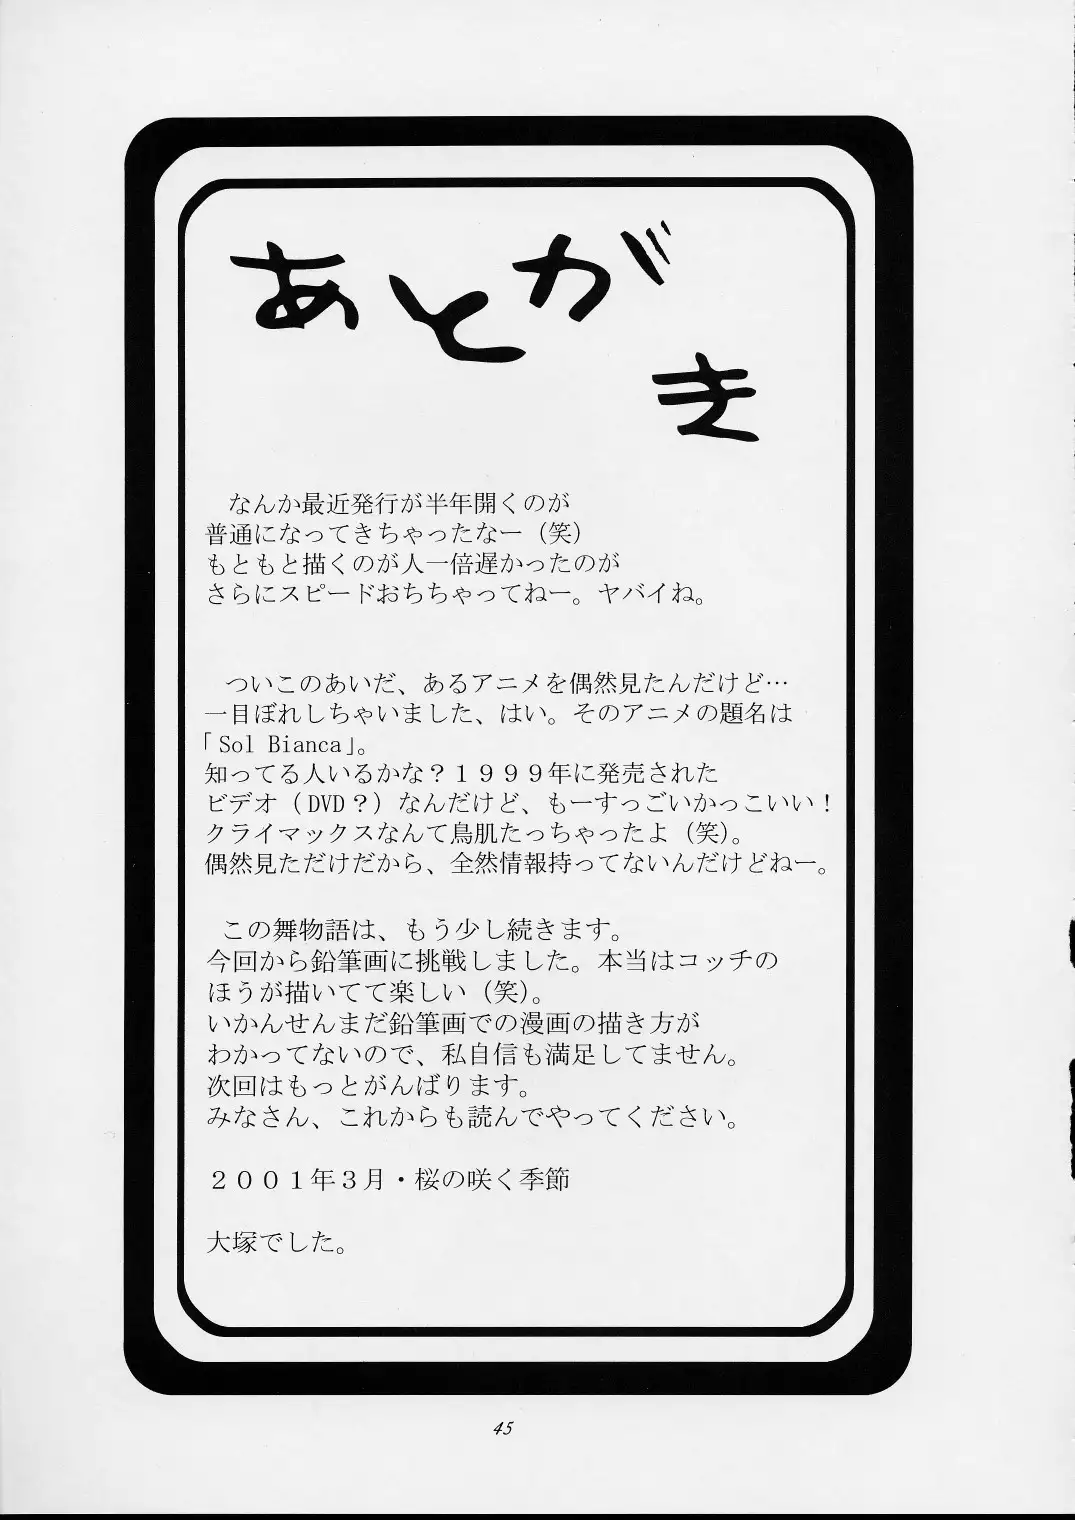 あとがき
なんか最近発行が半年開くのが
普通になってきちゃったなー（笑）
もともと描くのが人一倍遅かったのが
さらにスピードおちちゃってねー。ヤバイね。
ついこのあいだ、あるアニメを偶然見たんだけど…
一目ぼれしちゃいました、はい。そのアニメの題名は
「Sol Bianca」。
知ってる人いるかな？１９９９年に発売された
ビデオ（DVD？）なんだけど、もーすっごいかっこいい！
クライマックスなんて鳥肌たっちゃったよ（笑）。
偶然見ただけだから、全然情報持ってないんだけどねー。
この舞物語は、もう少し続きます。
今回から鉛筆画に挑戦しました。本当はコッチの
ほうが描いてて楽しい（笑）。
いかんせんまだ鉛筆画での漫画の描き方が
わかってないので、私自信も満足してません。
次回はもっとがんばります。
みなさん、これからも読んでやってください。
２００１年３月・桜の咲く季節
大塚でした。
45